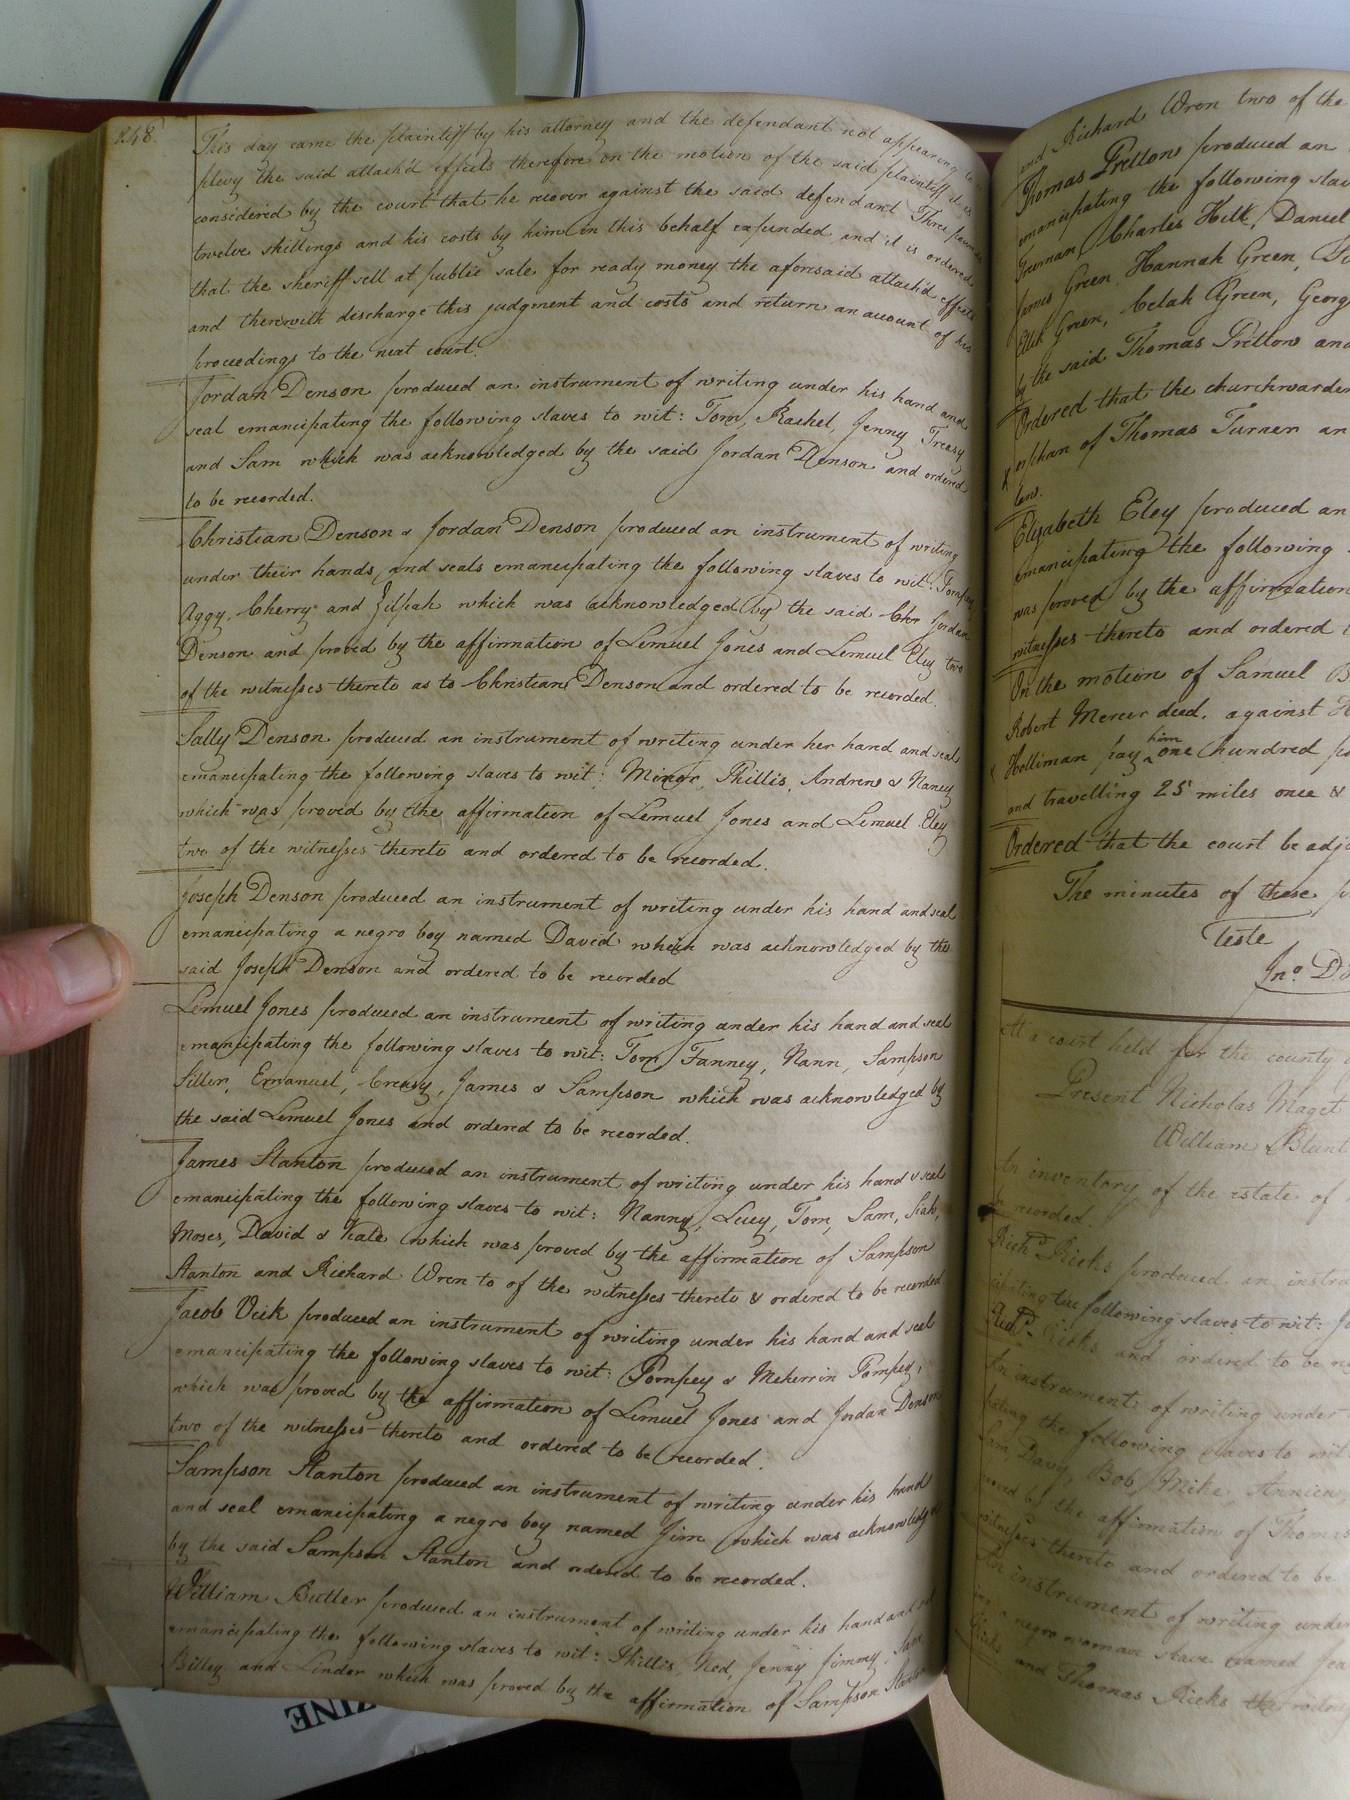 248
This day came the plaintiff by his attorney and the defendant not appearing to
plevy the said attach'd effects therefore on the motion of the said plaintiff it is
considered by the court that he recover against the said defendant Three pounds
twelve shillings and his costs by him in this behalf expended and it is ordered
that the sheriff sell at public sale for ready money the aforesaid attach'd effects
and therewith discharge this judgment and costs and return an account of his
proceedings to the next court.
Jordan Denson produced an instrument of writing under his hand and
seal emancipating the following slaves to wit: Tom, Rachel, Jenny Treasy
and Sam which was acknowledged by the said Jordan Denson and ordered
to be recorded.
Christian Denson & Jordan Denson produced an instrument of writing
under their hands and seals emancipating the following slaves to wit: Pompey
Aggy, Cherry and Zilpah which was acknowledged by the said Chr Jordan
Denson and proved by the affirmation of Lemuel Jones and Lemuel Eley two
of the witnesses thereto as to Christian Denson and ordered to be recorded.
Sally Denson produced an instrument of writing under her hand and seal
emancipating the following slaves to wit: Minor, Phillis, Andrew & Nancy
which was proved by the affirmation of Lemuel Jones and Lemuel Eley
two of the witnesses thereto and ordered to be recorded.
Joseph Denson produced an instrument of writing under his hand and seal
emancipating a negro boy named David which was acknowledged by the
said Joseph Denson and ordered to be recorded
Lemuel Jones produced an instrument of writing under his hand and seal
emancipating the following slaves to wit: Tom, Fanney, Nann, Sampson
Siller, Emanuel, Creasy, James & Sampson which was acknowledged by
the said Lemuel Jones and ordered to be recorded.
James Stanton produced an instrument of writing under his hand & seal
emancipating the following slaves to wit: Nanny, Lucy, Tom, Sam,
Moses, David & Kate which was proved by the affirmation of Sampson
Stanton and Richard Wren to of the witnesses thereto & ordered to be recorded
Jacob Vick produced an instrument of writing under his hand and seal
emancipating the following slaves to wit: Pompey & Mekerrin Pompey,
which was proved by the affirmation of Lemuel Jones and Jordan Denson
two of the witnesses thereto and ordered to be recorded.
Sampson Stanton produced an instrument of writing under his hand
and seal emancipating a negro boy named Jim which was acknowledged
by the said Sampson Stanton and ordered to be recorded.
William Butler produced an instrument of writing under his hand and seal
emancipating the following slaves to wit: Phillis, Ned, Jenny Jimmy, Jane
Billey and Linder which was proved by the affirmation of Sampson Stanton
and Richard Wren two of the
Thomas Pretlow produced an
emancipating the following slav
Charles Hill, Daniel
James Green Hannah Green,
Green, Celah Green, Georg
by the said Thomas Pretlow and
Ordered that the churchwarden
orphan of Thomas Turner an
law.
Elizabeth Eley produced an
emancipating the following
was proved by the affirmation
witnesses thereto and ordered
On the motion of Samuel B
Robert Mercer deed. against H
Holliman pay him one hundred po
and travelling 25 miles once &
Ordered that the court be adjo
The minutes of these p
Teste
Jno. D
At a court held for the county
Present Nicholas Maget
William Blunt
An inventory of the estate of
recorded.
Richd. Ricks produced an instru
cipating the following slaves to wit: J
Richd. Ricks and ordered to be re
An instrument of writing under
pating the following slaves to wit
Sam, Davy, Bob, Mike,
proved by the affirmation of Thomas
witnesses thereto and ordered to be
An instrument of writing under
a negro woman slave named
Ricks and Thomas Ricks the
ZINE